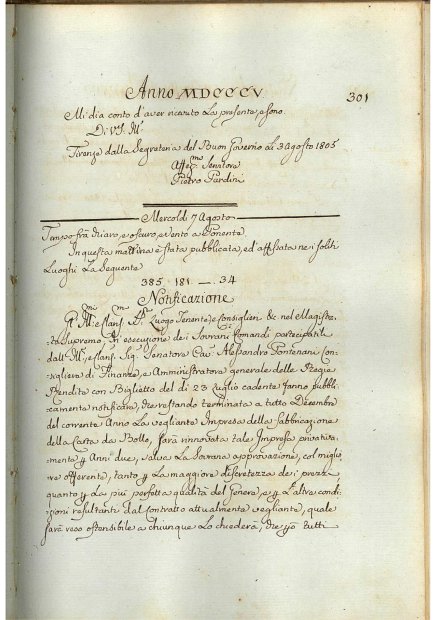 Anno MDCCCV
301
Mi dia conto d'aver ricevuto la presente, e sono
Di VS. Ill.
Firenze dalla Segreteria del Buon Governo li 3 Agosto 1805
Aff.mo Servitore
Pietro Pardini
Mercoldì 7 Agosto
Tempo frà chiaro, e oscuro, e vento a Ponente
In questa mattina è stata pubblicata, ed affissata ne i soliti
Luoghi La Seguente
385 181 — 34
Notificazione
Luogo Tenente, e Consiglieri &c nel Magistra-
to Supremo, in esecuzione dei Sovrani Comandi partecipatili
dall' Sig. Senatore Cav. Alessandro Pontenani Con-
sigliere di Finanze, e Amministratore generale delle Regie
Rendite con Biglietto del dì 23 Luglio cadente fanno pubbli-
camente notificare, che restando terminata a tutto Decembre
del corrente Anno La vegliante Impresa della fabbricazione
della Carta da Bollo, sarà rinnovata tale Impresa privativa-
mente p Anni due, salva La Sovrana approvazione, col miglio-
re offerente, tanto p La maggiore discretezza de i prezzi
quanto p La più perfetta qualità del Genere, e p L'altre condi-
zioni resultanti dal Contratto attualmente vegliante, quale
sarà reso ostensibile a chiunque Lo chiederà, che tutti